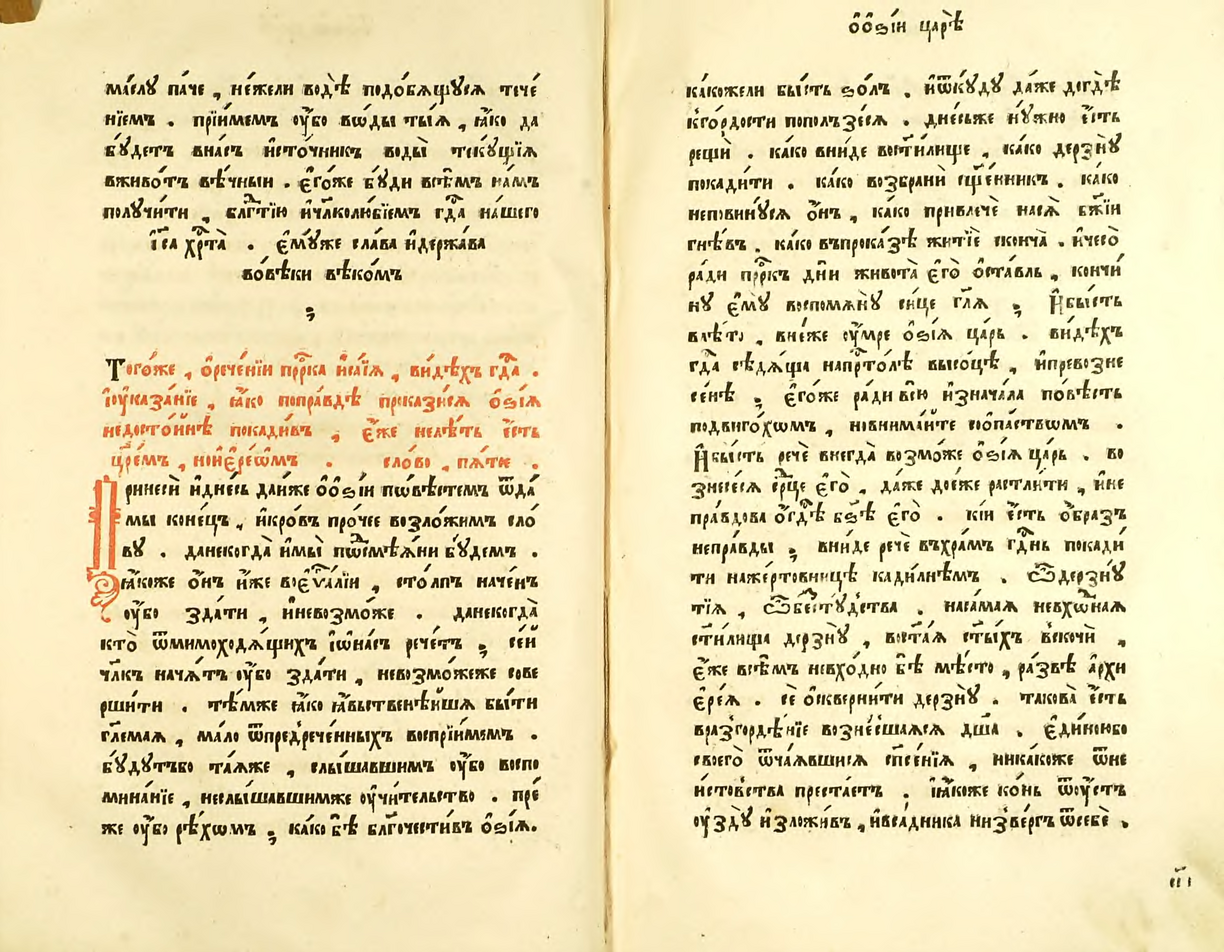 ма́слу па́че , не́жели водѣ̀ подо́бѧщуся тече́
нїемъ . прїи́мемъ ᲂу҆̀бо во́ды ты́ѧ , ꙗ҆́ко да
бꙋ́детъ внᲂасъ и҆сто́чникъ воды̀ текꙋ́щїѧ
вживо́тъ вѣ́чныи . є҆го́же бꙋ́ди всѣ́мъ на́мъ
полꙋчи́ти , блгⷣтїю и҆чл҃колю́бїемъ гдⷭ҇а на́шего
і҆с҃а хрⷭ҇та̀ . є҆мꙋ́же сла́ва и҆держа́ва
во́вѣки вѣко́мъ
Того́же , ѡ҆рече́нїи прⷪ҇рка и҆са́їѧ , ви́дѣхъ гдⷭ҇а .
і҆ᲂу҆каза́нїе , ꙗ҆́ко попра́вдѣ прокази́сѧ ѻ҆ѕі́ѧ
недосто́йнѣ покади́въ , є҆́же нелѣ́ть є҆́сть
цр҃е́мъ , нои҆є҆ре́ѡмъ . сло́во , пѧ́тое .
Принесѝ и҆дне́сь да́нже ѡ҆ѻ҆ѕі́и по́вѣстемъ ѿда
мы̀ коне́цъ , и҆кро́въ про́чее возложи́мъ сло́
вꙋ . данекогда̀ и҆мы̀ посмѣѧ́ни бꙋ́демъ .
ꙗ҆́коже ѻ҆́нъ и҆́же воє҆ѵⷢ҇а́лїи , сто́лпъ наче́нъ
ᲂу҆́бо зда́ти , и҆невозмо́же . данекогда̀
кто̀ ѿмимоходѧ́щихъ і҆ѡ҆на́съ рече́тъ ; се́й
чл҃къ нача́тъ ᲂу҆́бо зда́ти , невозмо́жеже сове
рши́ти . тѣ́мже ꙗ҆́ко ꙗ҆́вственнѣйша бы́ти
гл҃емаѧ , ма́ло ѿпредрече́нныхъ воспрїи́мемъ .
бꙋ́дꙋтъбо та́ѧже , слы́шавшимъ ᲂу҆́бо воспо
мина́нїе , неслы́шавшимже ᲂу҆чи́тельство . пре́
же ᲂу҆́бо рѣ́хомъ ; ка́ко бѣ̀ благочести́въ ѻ҆ѕі́ѧ.
ѡ҆ѻ҆ѕі́и царѣ̀
ка́кожели бы́сть ѕо́лъ . и҆ѿкꙋ́дꙋ да́же догдѣ̀
кго́рдости пополъзе́сѧ . дне́сьже нꙋ́жно є҆́сть
рещѝ . ка́ко вни́де востили́ще , ка́ко дерзнꙋ̀
покади́ти . ка́ко возбранѝ сщ҃е́нникъ . ка́ко
неповинꙋ́сѧ ѻ҆́нъ , ка́ко привлечѐ насѧ̀ бж҃їи
гнѣ́въ . ка́ко въпрока́зѣ житїѐ сконча̀ . и҆чесо̀
ра́ди прⷪ҇ркъ днѝ живота̀ є҆гѡ̀ ѻ҆ста́вль , кончи́
нꙋ є҆мꙋ̀ воспомѧнꙋ̀ си́це гл҃ѧ ; И҆бы́сть
влѣ́то , вне́же ᲂу҆́мре ѻ҆ѕі́ѧ ца́рь . ви́дѣхъ
гдⷭ҇а сѣдѧ́ща напрⷭ҇то́лѣ высо́цѣ , и҆превозне
се́нѣ ; є҆го́же ра́ди всю̀ и҆знача́ла по́вѣсть
подвиго́хомъ , новнима́йте соо́паствомъ .
И҆бы́сть речѐ внегда̀ возмо́же ѻ҆ѕі́ѧ ца́рь . во
знесе́сѧ се́рⷣце є҆гѡ̀ , да́же досе́же растли́ти , и҆не
пра́вдова ѻ҆гдⷭ҇ѣ бз҃ѣ є҆гѡ̀ . кі́и є҆́сть ѻ҆́бразъ
непра́вды ; вни́де речѐ въхра́мъ гдⷭ҇нь покади́
ти наже́ртовницѣ кади́лнѣмъ . Ѽдерзнꙋ́
тїѧ , ѽбестꙋ́дства . наса́маѧ невхѡ́днаѧ
ст҃и́лища дерзнꙋ̀ , во ст҃а́ѧ ст҃ы́хъ вскочѝ ,
є҆́же всѣ́мъ невхо́дно бѣ̀ мѣ́сто , ра́звѣ а҆рхи
є҆ре́ѧ . сѐ ѻ҆скверни́ти дерзнꙋ̀ . такова̀ є҆́сть
вразгордѣ́нїе возне́сшаѧсѧ дш҃а̀ . є҆ди́ноюбо
своегѡ̀ ѿча́ѧвшисѧ спⷭ҇е́нїѧ , ника́коже ѿне
и҆стовства преста́етъ . і҆ꙗ҆́коже ко́нь ѿᲂу҆́стъ
ᲂу҆здꙋ̀ и҆зложи́въ , и҆вса́дника низве́ргъ ѿсебѐ ,